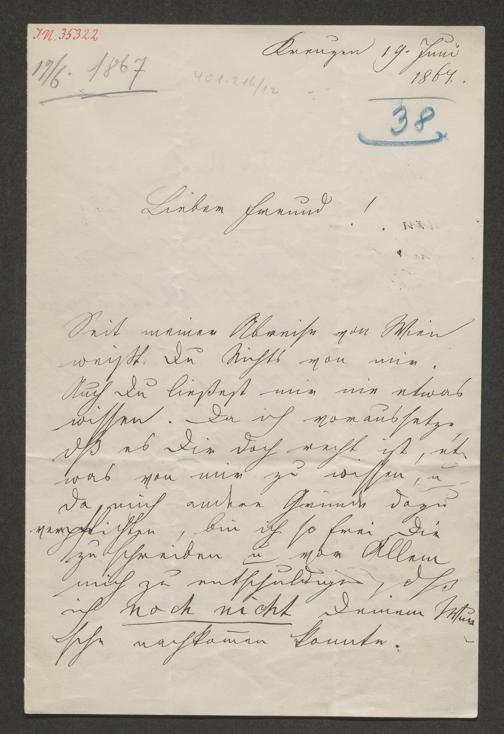 I.N. 35322
19/6. 1867
401.216/12
Kreuzen 19. Juni
1867.
38
Lieber Freund!
Seit meiner Abreise von Wien
weißt Du Nichts von mir.
Auch Du ließest mir nie etwas
wissen. Da ich voraussetze,
daß es Dir doch recht ist, et-
was von mir zu wissen, u
da mich andere Gründe dazu
verpflichten, bin ich so frei Dir
zu schreiben u vor Allem
mich zu entschuldigen, daß
ich noch nicht Deinem Wun-
sche nachkomen konnte.